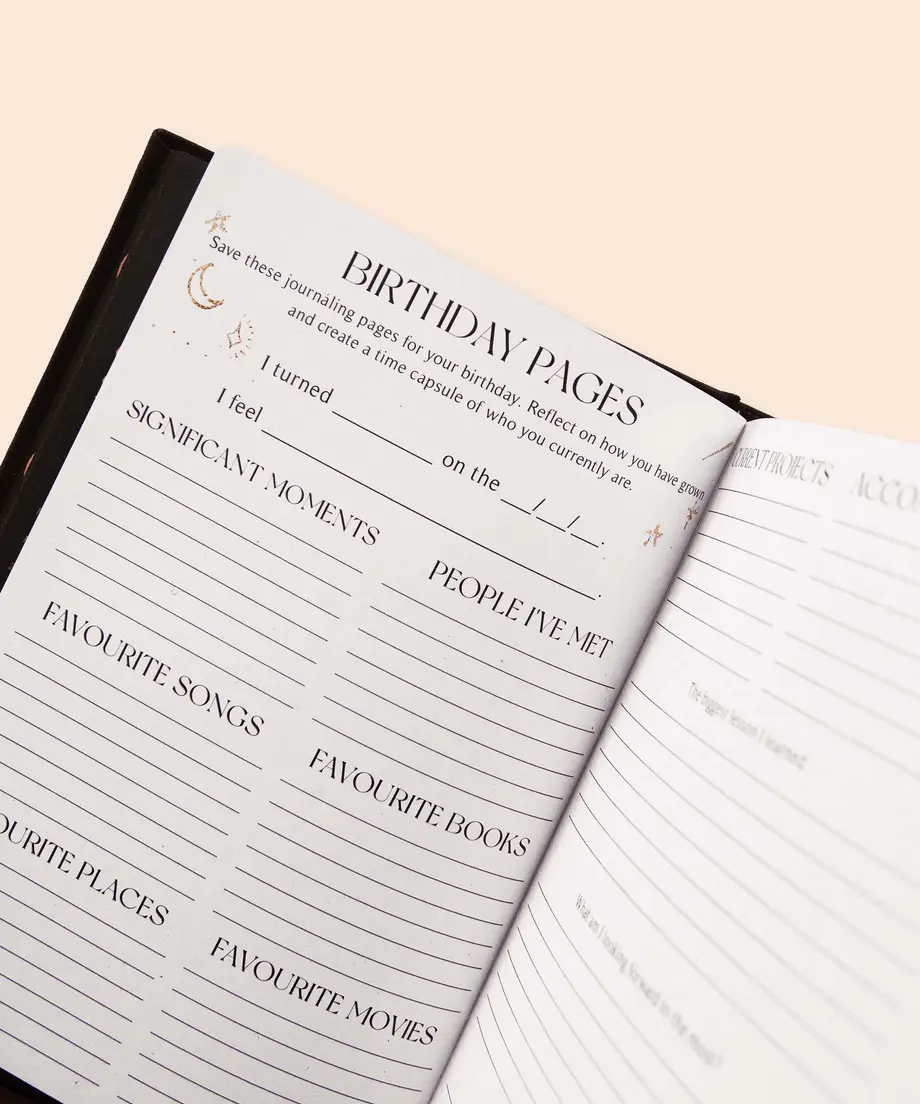 BIRTHDAY PAGES
Save these journaling pages for your birthday. Reflect on how you have grown
and create a time capsule of who you currently are.
I turned ____ on the __/__/__.
I feel ____.
SIGNIFICANT MOMENTS
PEOPLE I'VE MET
FAVOURITE SONGS
FAVOURITE BOOKS
OURITE PLACES
FAVOURITE MOVIES
CURRENT PROJECTS
ACCO
The biggest lesson I learned:
What am I looking forward to the most?